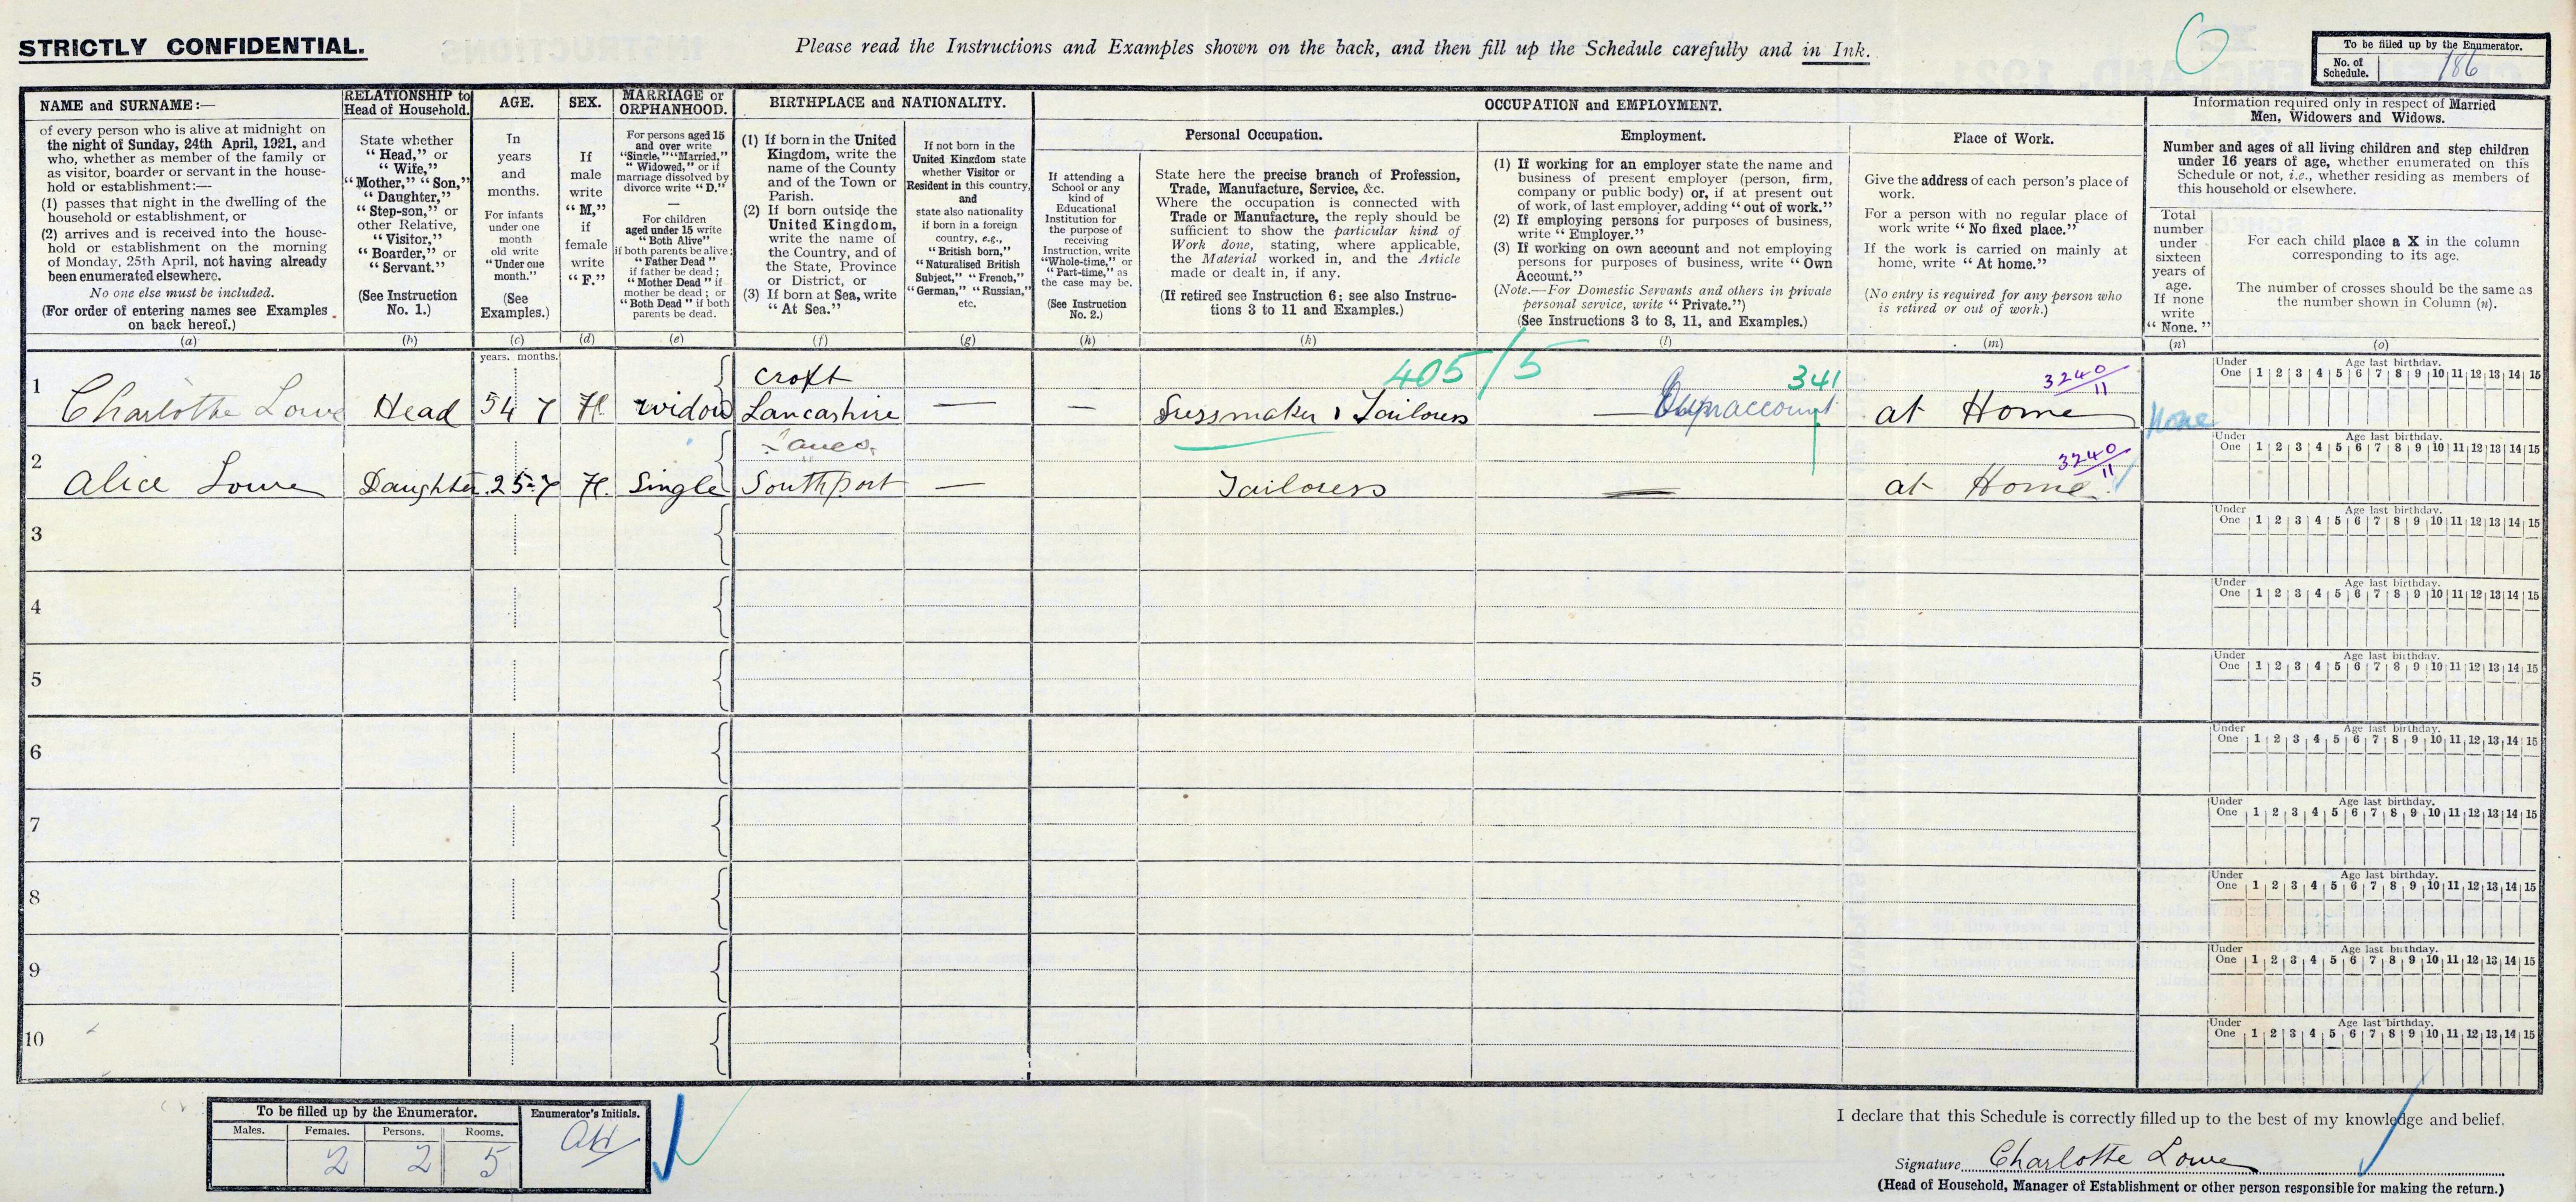 STRICTLY CONFIDENTIAL.
Please read the Instructions and Examples shown on the back, and then fill up the Schedule carefully and in Ink.
6
To be filled up by the Enumerator.
No. of Schedule. 186
NAME and SURNAME:—
of every person who is alive at midnight on
the night of Sunday, 24th April, 1921, and
who, whether as member of the family or
as visitor, boarder or servant in the house-
hold or establishment:—
(1) passes that night in the dwelling of the
household or establishment, or
(2) arrives and is received into the house-
hold or establishment on the morning
of Monday, 25th April, not having already
been enumerated elsewhere.
No one else must be included.
(For order of entering names see Examples
on back hereof.)
(a)
RELATIONSHIP to
Head of Household.
State whether
"Head," or
"Wife,"
"Mother," "Son,"
"Daughter,"
"Step-son," or
other Relative,
"Visitor,"
"Boarder," or
"Servant."
(See Instruction
No. 1.)
(b)
AGE.
In
years
and
months.
For infants
under one
month
old write
"Under one
month."
(See
Examples.)
(c)
SEX.
If
male
write
"M,"
if
female
write
"F."
(d)
MARRIAGE or
ORPHANHOOD.
For persons aged 15
and over write
"Single," "Married,"
"Widowed," or if
marriage dissolved by
divorce write "D."
—
For children
aged under 15 write
"Both Alive"
if both parents be alive;
"Father Dead"
if father be dead;
"Mother Dead" if
mother be dead; or
"Both Dead" if both
parents be dead.
(e)
BIRTHPLACE and NATIONALITY.
(1) If born in the United
Kingdom, write the
name of the County
and of the Town or
Parish.
(2) If born outside the
United Kingdom,
write the name of
the Country, and of
the State, Province
or District, or
(3) If born at Sea, write
"At Sea."
(f)
If not born in the
United Kingdom state
whether Visitor or
Resident in this country,
and
state also nationality
if born in a foreign
country, e.g.,
"British born,"
"Naturalised British
Subject," "French,"
"German," "Russian,"
etc.
(g)
OCCUPATION and EMPLOYMENT.
If attending a
School or any
kind of
Educational
Institution for
the purpose of
receiving
Instruction, write
"Whole-time," or
"Part-time," as
the case may be.
(See Instruction
No. 2.)
(h)
Personal Occupation.
State here the precise branch of Profession,
Trade, Manufacture, Service, &c.
Where the occupation is connected with
Trade or Manufacture, the reply should be
sufficient to show the particular kind of
Work done, stating, where applicable,
the Material worked in, and the Article
made or dealt in, if any.
(If retired see Instruction 6; see also Instruc-
tions 3 to 11 and Examples.)
(k)
Employment.
(1) If working for an employer state the name and
business of present employer (person, firm,
company or public body) or, if at present out
of work, of last employer, adding "out of work."
(2) If employing persons for purposes of business,
write "Employer."
(3) If working on own account and not employing
persons for purposes of business, write "Own
Account."
(Note.—For Domestic Servants and others in private
personal service, write "Private.")
(See Instructions 3 to 8, 11, and Examples.)
(l)
Place of Work.
Give the address of each person's place of
work.
For a person with no regular place of
work write "No fixed place."
If the work is carried on mainly at
home, write "At home."
(No entry is required for any person who
is retired or out of work.)
(m)
Information required only in respect of Married
Men, Widowers and Widows.
Number and ages of all living children and step children
under 16 years of age, whether enumerated on this
Schedule or not, i.e., whether residing as members of
this household or elsewhere.
Total
number
under
sixteen
years of
age.
If none
write
"None."
(n)
For each child place a X in the column
corresponding to its age.
The number of crosses should be the same as
the number shown in Column (n).
(o)
years. months.
405/5
341
3240/11
Under One Age last birthday. 1 2 3 4 5 6 7 8 9 10 11 12 13 14 15
Croft
1 Charlotte Lowe Head 54 7 F. widow Lancashire — — Dressmaker & Tailoress — Own account at Home None
Lancs.
3240/11
Under One Age last birthday. 1 2 3 4 5 6 7 8 9 10 11 12 13 14 15
2 Alice Lowe Daughter 25 7 F. Single Southport — Tailoress — at Home
3 Under One Age last birthday. 1 2 3 4 5 6 7 8 9 10 11 12 13 14 15
4 Under One Age last birthday. 1 2 3 4 5 6 7 8 9 10 11 12 13 14 15
5 Under One Age last birthday. 1 2 3 4 5 6 7 8 9 10 11 12 13 14 15
6 Under One Age last birthday. 1 2 3 4 5 6 7 8 9 10 11 12 13 14 15
7 Under One Age last birthday. 1 2 3 4 5 6 7 8 9 10 11 12 13 14 15
8 Under One Age last birthday. 1 2 3 4 5 6 7 8 9 10 11 12 13 14 15
9 Under One Age last birthday. 1 2 3 4 5 6 7 8 9 10 11 12 13 14 15
10 Under One Age last birthday. 1 2 3 4 5 6 7 8 9 10 11 12 13 14 15
To be filled up by the Enumerator.
Enumerator's Initials.
Males. Females. Persons. Rooms.
2 2 5
I declare that this Schedule is correctly filled up to the best of my knowledge and belief.
Signature Charlotte Lowe
(Head of Household, Manager of Establishment or other person responsible for making the return.)